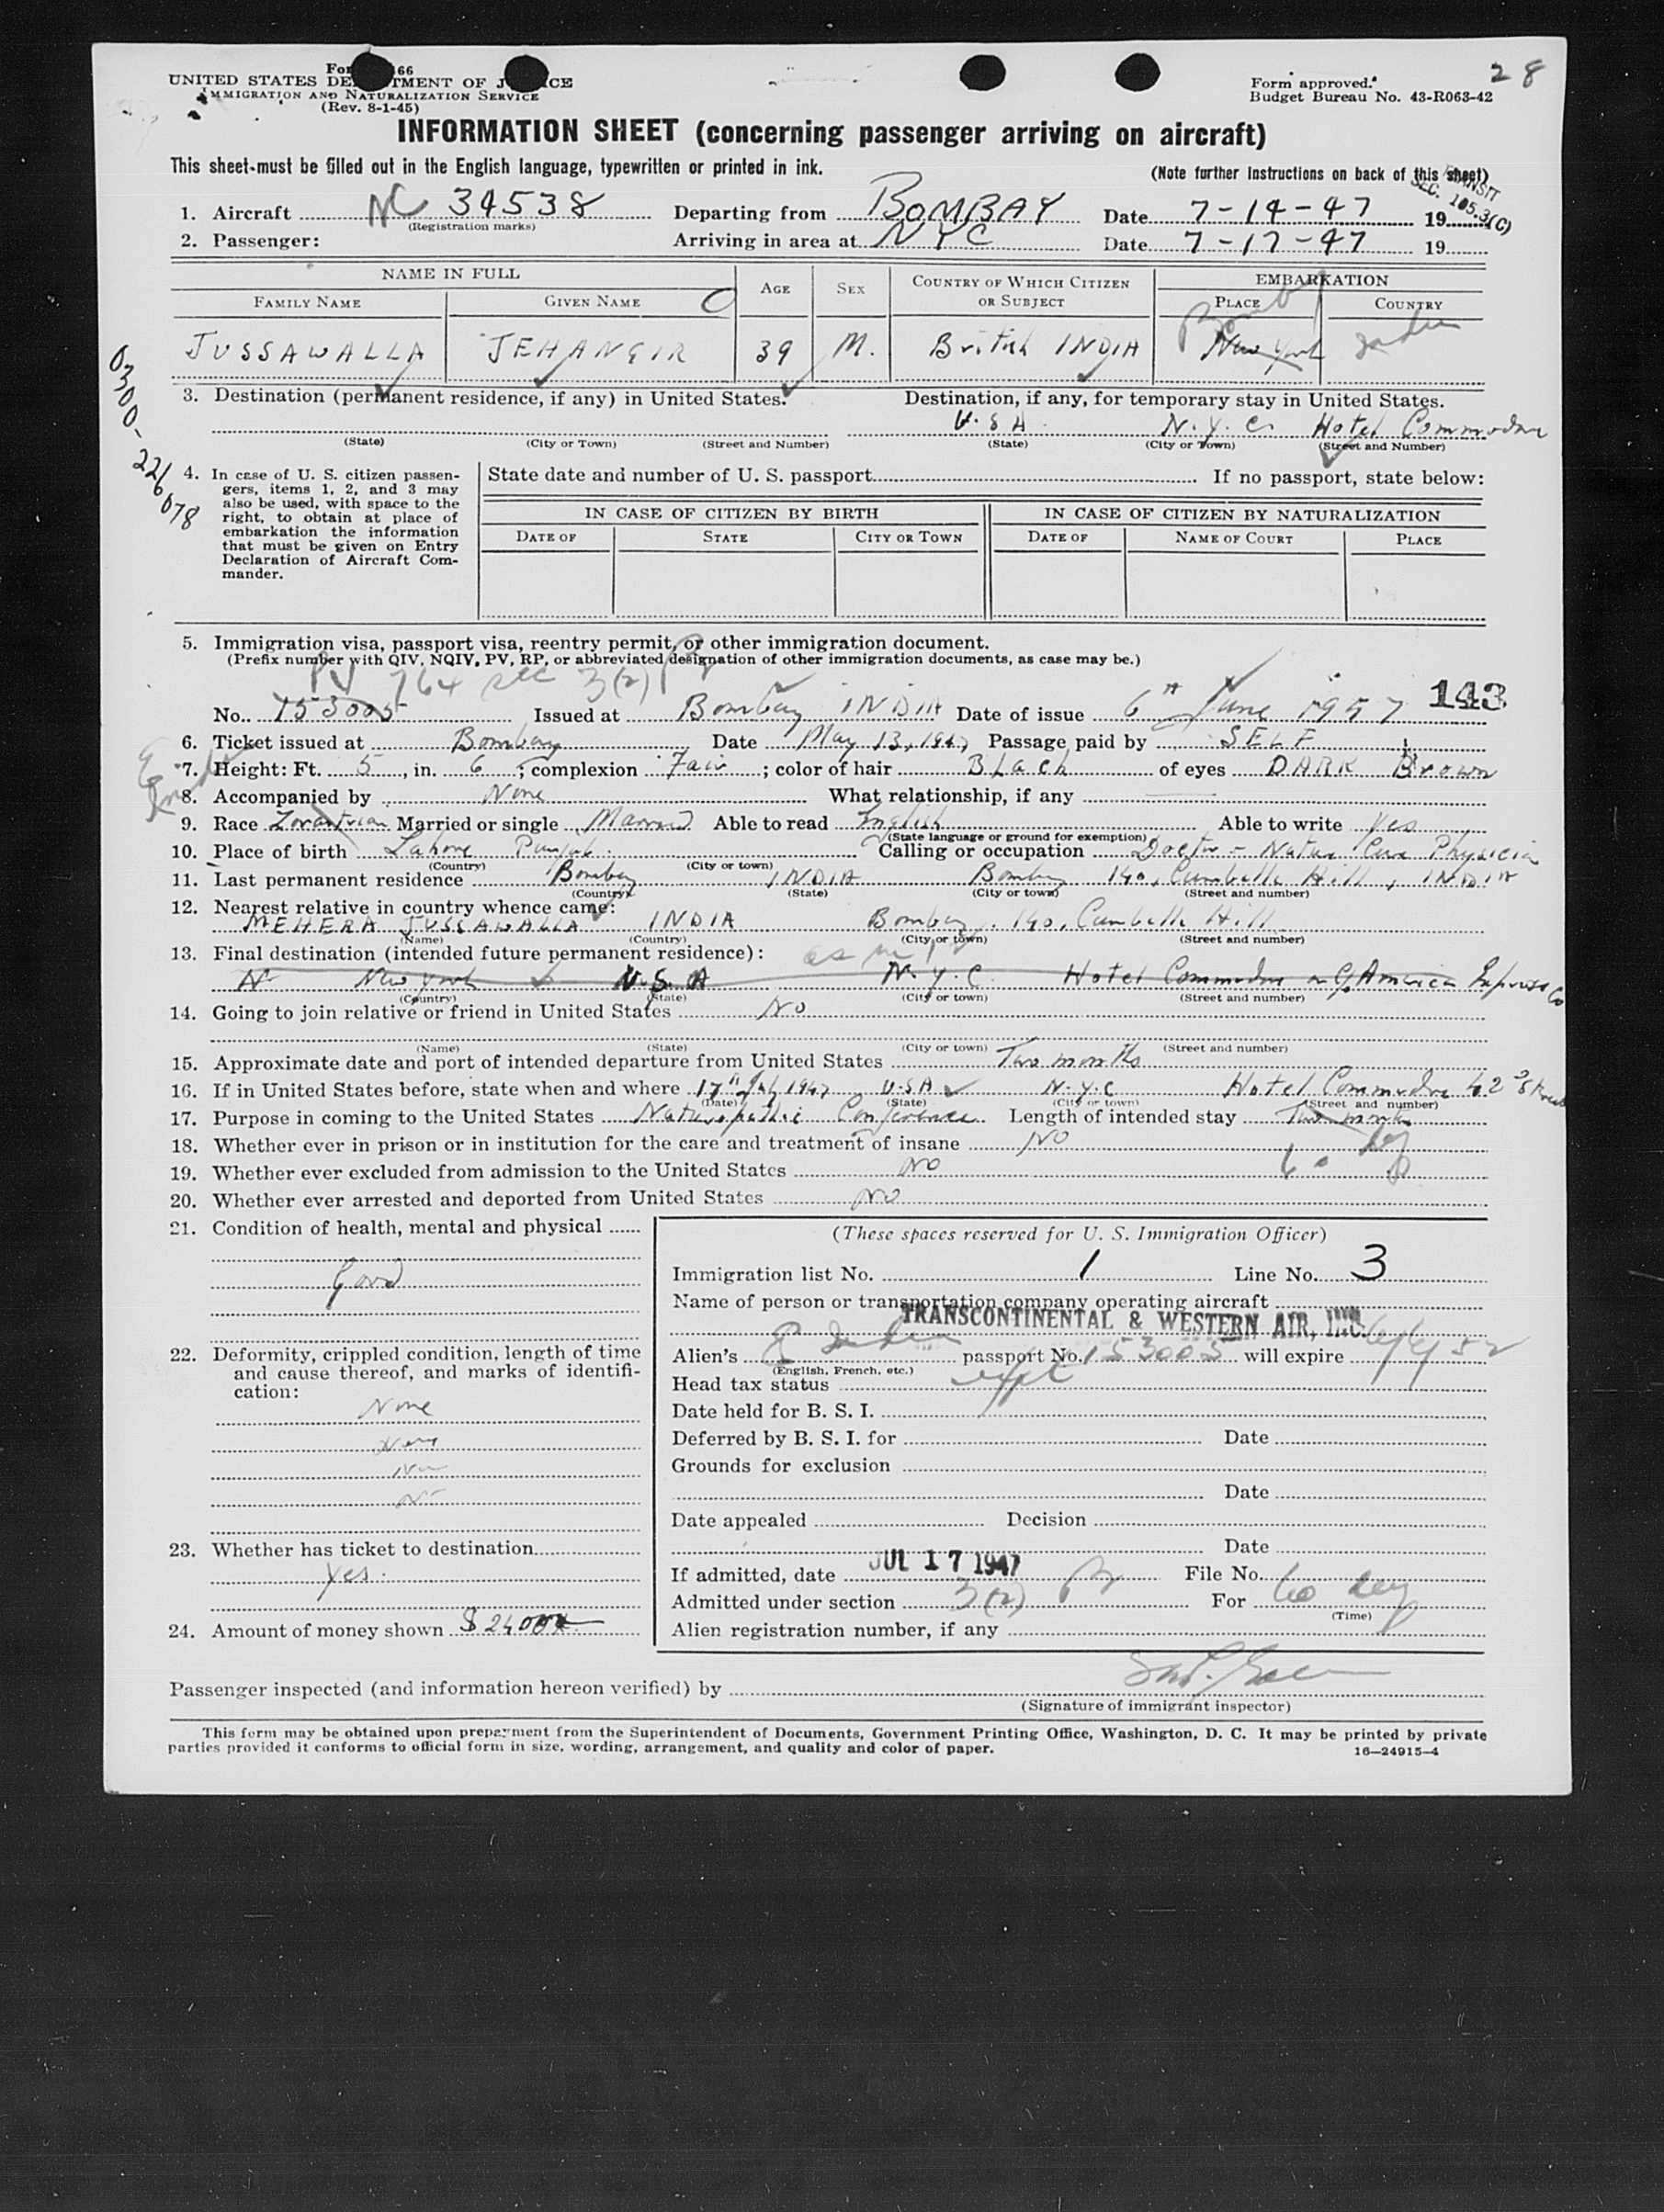 28
Form approved.
UNITED STATES DE TMENT OF J CE
IMMIGRATION AND NATURALIZATION SERVICE
Budget Bureau No. 43-R063-42
(Rev. 8-1-45)
INFORMATION SHEET (concerning passenger arriving on aircraft)
This sheet must be filled out in the English language, typewritten or printed in ink.
(Note further instructions on back of this sheet)
SEC. 105.3(C)
1. Aircraft NC 34538 Departing from BOMBAY Date 7-14-47 19
(Registration marks)
2. Passenger: Arriving in area at NYC Date 7-17-47 19
NAME IN FULL AGE SEX COUNTRY OF WHICH CITIZEN OR SUBJECT EMBARKATION
FAMILY NAME GIVEN NAME C PLACE COUNTRY
Bombay India
JUSSAWALLA JEHANGIR 39 M. British INDIA New York
0300-
226
078
3. Destination (permanent residence, if any) in United States. Destination, if any, for temporary stay in United States.
U.S.A. N.Y.C. Hotel Commodore
(State) (City or Town) (Street and Number) (State) (City or Town) (Street and Number)
4. In case of U. S. citizen passengers, items 1, 2, and 3 may also be used, with space to the right, to obtain at place of embarkation the information that must be given on Entry Declaration of Aircraft Commander.
State date and number of U. S. passport If no passport, state below:
IN CASE OF CITIZEN BY BIRTH IN CASE OF CITIZEN BY NATURALIZATION
DATE OF STATE CITY OR TOWN DATE OF NAME OF COURT PLACE
5. Immigration visa, passport visa, reentry permit, or other immigration document.
(Prefix number with QIV, NQIV, PV, RP, or abbreviated designation of other immigration documents, as case may be.)
PV 764 sec 3(2)
143
No. 153005 Issued at Bombay INDIA Date of issue 6th June 1947
6. Ticket issued at Bombay Date May 13, 1947 Passage paid by SELF
7. Height: Ft. 5, in. 6; complexion Fair; color of hair BLack of eyes DARK Brown
8. Accompanied by None What relationship, if any
9. Race Zorastrian Married or single Married Able to read English Able to write Yes
(State language or ground for exemption)
10. Place of birth Lahore Punjab. Calling or occupation Doctor - Nature Cure Physician
(Country) (City or town)
11. Last permanent residence Bombay INDIA Bombay 140, Cumballa Hill, INDIA
(Country) (State) (City or town) (Street and number)
12. Nearest relative in country whence came:
MEHERA JUSSAWALLA INDIA Bombay. 140, Cumballa Hill
(Name) (Country) (City or town) (Street and number)
13. Final destination (intended future permanent residence):
New York U.S.A N.Y.C. Hotel Commodore America Express Co
(Country) (State) (City or town) (Street and number)
14. Going to join relative or friend in United States No
(Name) (State) (City or town) (Street and number)
15. Approximate date and port of intended departure from United States Two months
16. If in United States before, state when and where 17th July 1947 U.S.A N.Y.C Hotel Commodore 42
(Date) (State) (City or town) (Street and number)
17. Purpose in coming to the United States Naturopathic Conference Length of intended stay Two months
18. Whether ever in prison or in institution for the care and treatment of insane NO
19. Whether ever excluded from admission to the United States NO
20. Whether ever arrested and deported from United States NO
21. Condition of health, mental and physical
Good
22. Deformity, crippled condition, length of time and cause thereof, and marks of identification:
None
23. Whether has ticket to destination
Yes.
24. Amount of money shown
(These spaces reserved for U. S. Immigration Officer)
Immigration list No. 1 Line No. 3
Name of person or transportation company operating aircraft
TRANSCONTINENTAL & WESTERN AIR, INC.
Alien's passport No. 153005 will expire 6/6/52
(English, French, etc.)
Head tax status
Date held for B. S. I.
Deferred by B. S. I. for Date
Grounds for exclusion
Date
Date appealed Decision
Date
If admitted, date JUL 17 1947 File No.
Admitted under section 3(2) For 60 days
(Time)
Alien registration number, if any
Passenger inspected (and information hereon verified) by
(Signature of immigrant inspector)
This form may be obtained upon prepayment from the Superintendent of Documents, Government Printing Office, Washington, D. C. It may be printed by private
parties provided it conforms to official form in size, wording, arrangement, and quality and color of paper.
16—24915-4